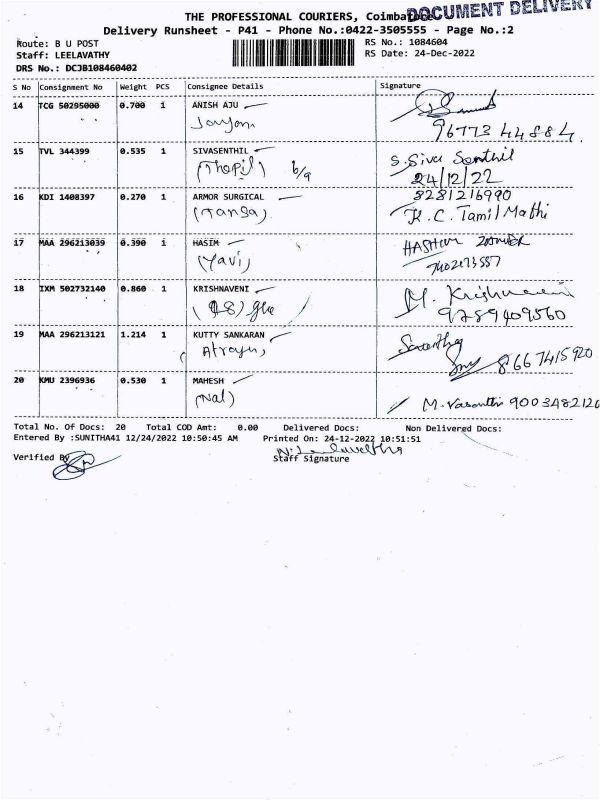 THE PROFESSIONAL COURIERS, Coimbatore
DOCUMENT DELIVERY
Delivery Runsheet - P41 - Phone No.:0422-3505555 - Page No.:2
Route: B U POST RS No.: 1084604
Staff: LEELAVATHY RS Date: 24-Dec-2022
DRS No.: DCJB108460402
S No Consignment No Weight PCS Consignee Details Signature
14 TCG 50295000 0.700 1 ANISH AJU
96773 44884
15 TVL 344399 0.535 1 SIVASENTHIL S. Siva Senthil
(Thopil) b/a 24/12/22
16 KDI 1408397 0.270 1 ARMOR SURGICAL 8281216990
(Tansa) K.C. Tamil Mathi
17 MAA 296213039 0.390 1 HASIM
(Yavi) 7402173557
18 IXM 502732140 0.860 1 KRISHNAVENI M. Krishnaveni
9789409560
19 MAA 296213121 1.214 1 KUTTY SANKARAN
8667415920
20 KMU 2396936 0.530 1 MAHESH
(Nal) M. Vasanthi 9003482120
Total No. Of Docs: 20 Total COD Amt: 0.00 Delivered Docs: Non Delivered Docs:
Entered By :SUNITHA41 12/24/2022 10:50:45 AM Printed On: 24-12-2022 10:51:51
Verified By Staff Signature